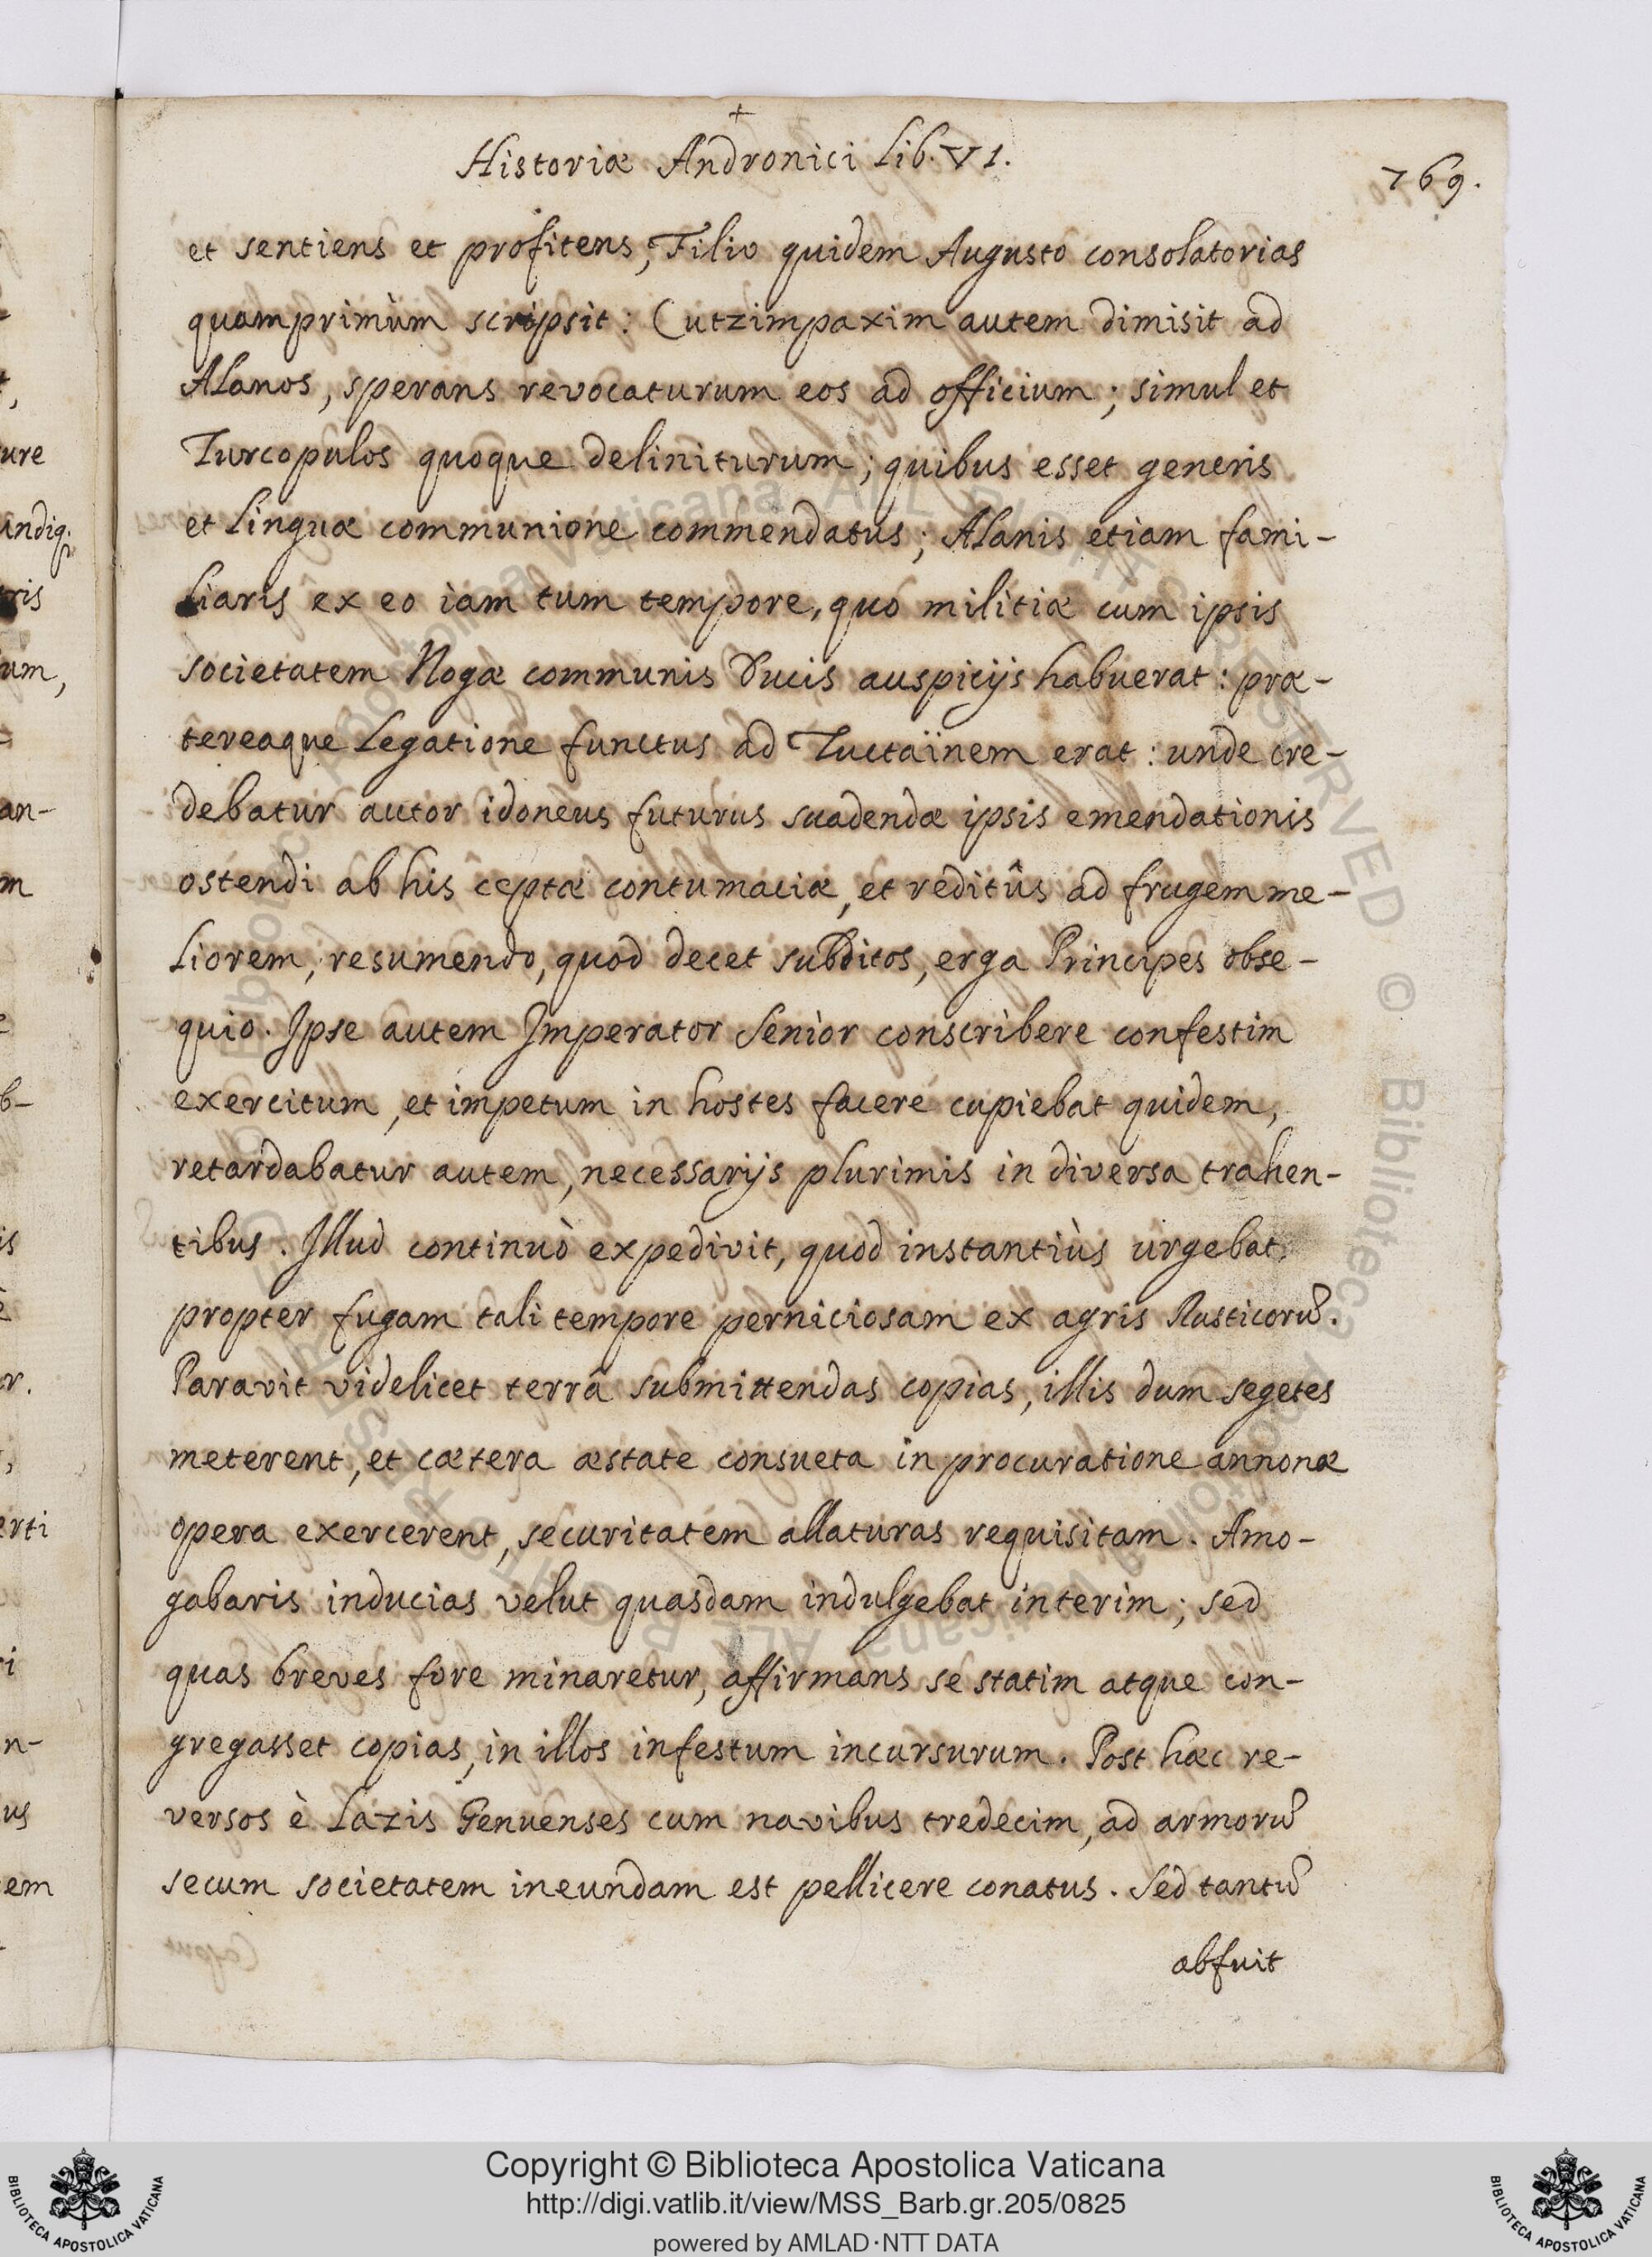 +
Historiæ Andronici Lib. VI.
769.
et sentiens et profitens, Filio quidem Augusto consolatorias
quamprimùm scripsit: Cutzimpaxim autem dimisit ad
Alanos, sperans revocaturum eos ad officium; simul et
Turcopulos quoque deliniturum; quibus esset generis
et linguæ communione commendatus; Alanis etiam fami-
liaris ex eo iam tum tempore, quo militiæ cum ipsis
societatem Nogæ communis Ducis auspicijs habuerat: præ-
tereaque Legatione functus ad Tuctaïnem erat: unde cre-
debatur auctor idoneus futurus suadendæ ipsis emendationis
ostendi ab his cęptæ contumaciæ, et reditûs ad frugem me-
liorem, resumendo, quod decet subditos, erga Principes obse-
quio. Ipse autem Imperator Senior conscribere confestim
exercitum, et impetum in hostes facere cupiebat quidem,
retardabatur autem, necessarijs plurimis in diversa trahen-
tibus. Illud continuò expedivit, quod instantiùs urgebat
propter fugam tali tempore perniciosam ex agris Rusticorũ.
Paravit videlicet terrâ submittendas copias, illis dum segetes
meterent, et cætera æstate consueta in procuratione annonæ
opera exercerent, securitatem allaturas requisitam. Amo-
gabaris inducias velut quasdam indulgebat interim; sed
quas breves fore minaretur, affirmans se statim atque con-
gregasset copias, in illos infestum incursurum. Post hæc re-
versos è Lazis Genuenses cum navibus tredecim, ad armorũ
secum societatem ineundam est pellicere conatus. Sed tantũ
abfuit
ure
undiq;
ris
um,
an-
m
b-
is
r.
erti
i
n-
us
em
Copyright © Biblioteca Apostolica Vaticana
http://digi.vatlib.it/view/MSS_Barb.gr.205/0825
powered by AMLAD·NTT DATA
BIBLIOTECA APOSTOLICA VATICANA
BIBLIOTECA APOSTOLICA VATICANA